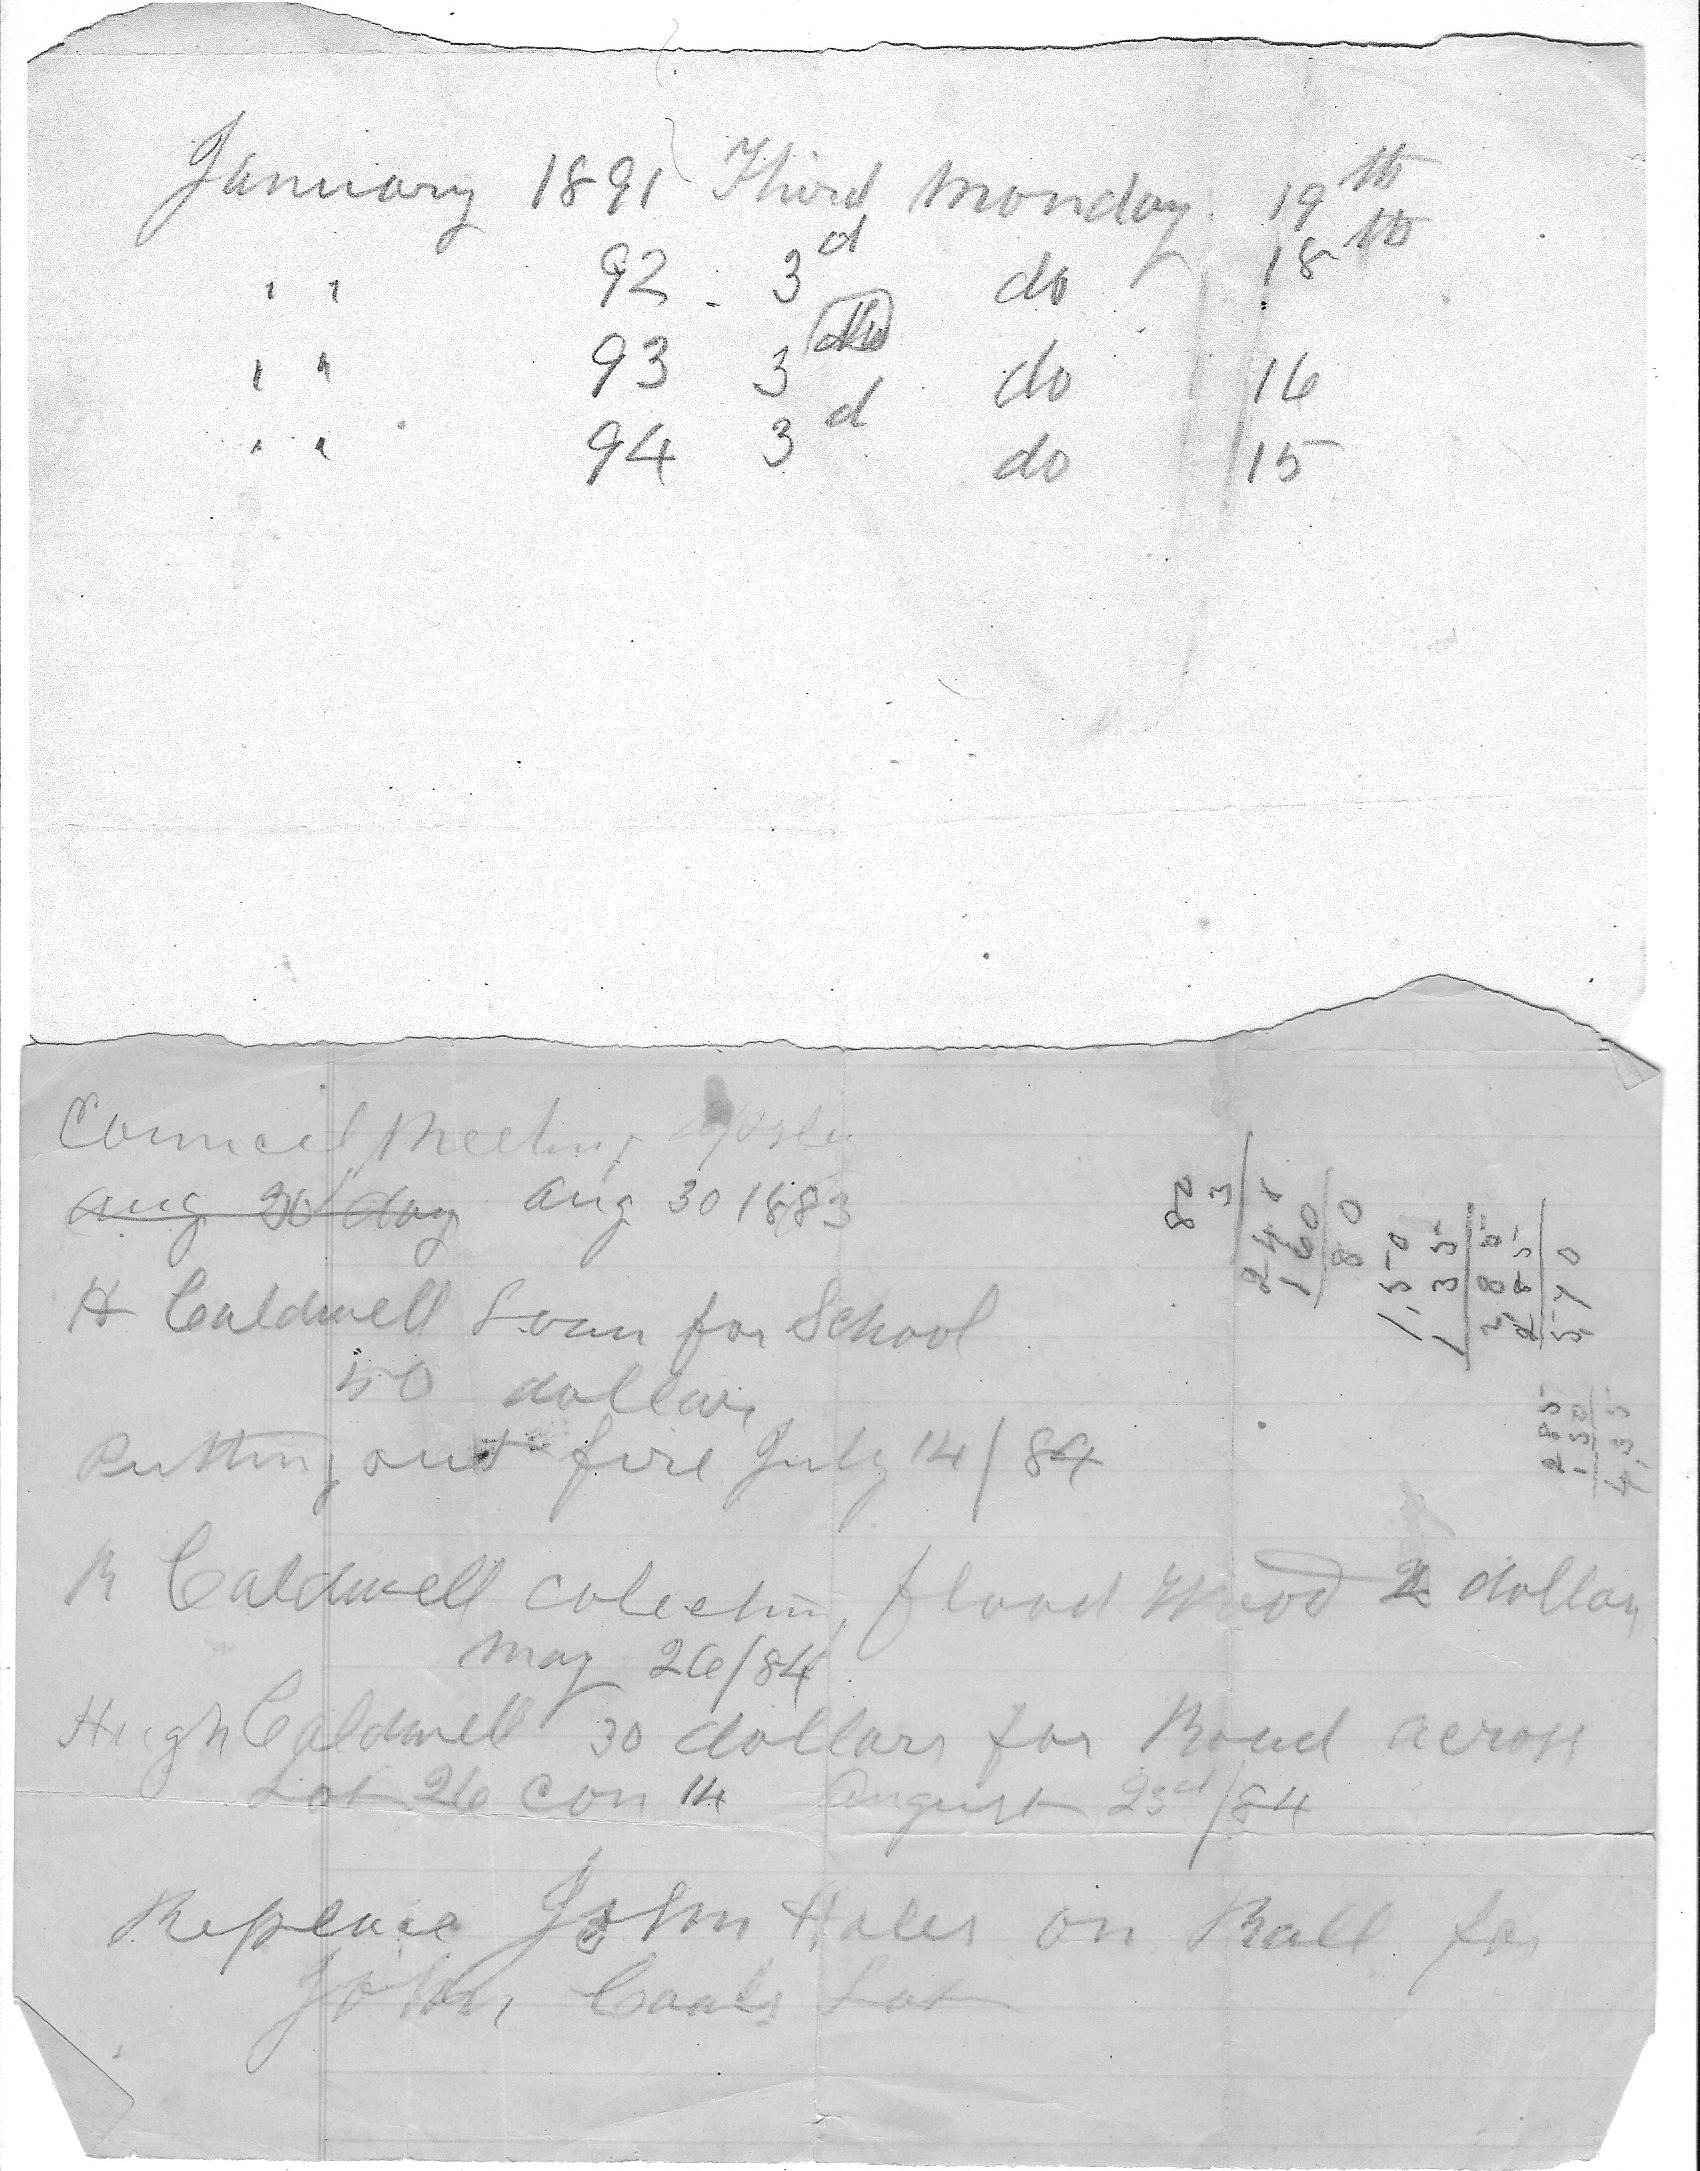 January 1891 Third Monday 19th
" " 92 - 3d do 18th
" " 93 3 do 16
" " 94 3d do 15
Council Meeting Apsley
Aug 30 day Aug 30 1883
H Caldwell Loan for School
50 dollars
Putting out fire July 14/84
R Caldwell Colecting flood Wood 2 dollars
May 26/84
Hugh Caldwell 30 dollars for Road across
Lot 26 Con 14 August 23d/84
Replace John Hales on Roll for
John Coals Lot
82
3
24
160
80
1.50
1 35
2 85
2 85
5 70
2 85
1 50
4.35